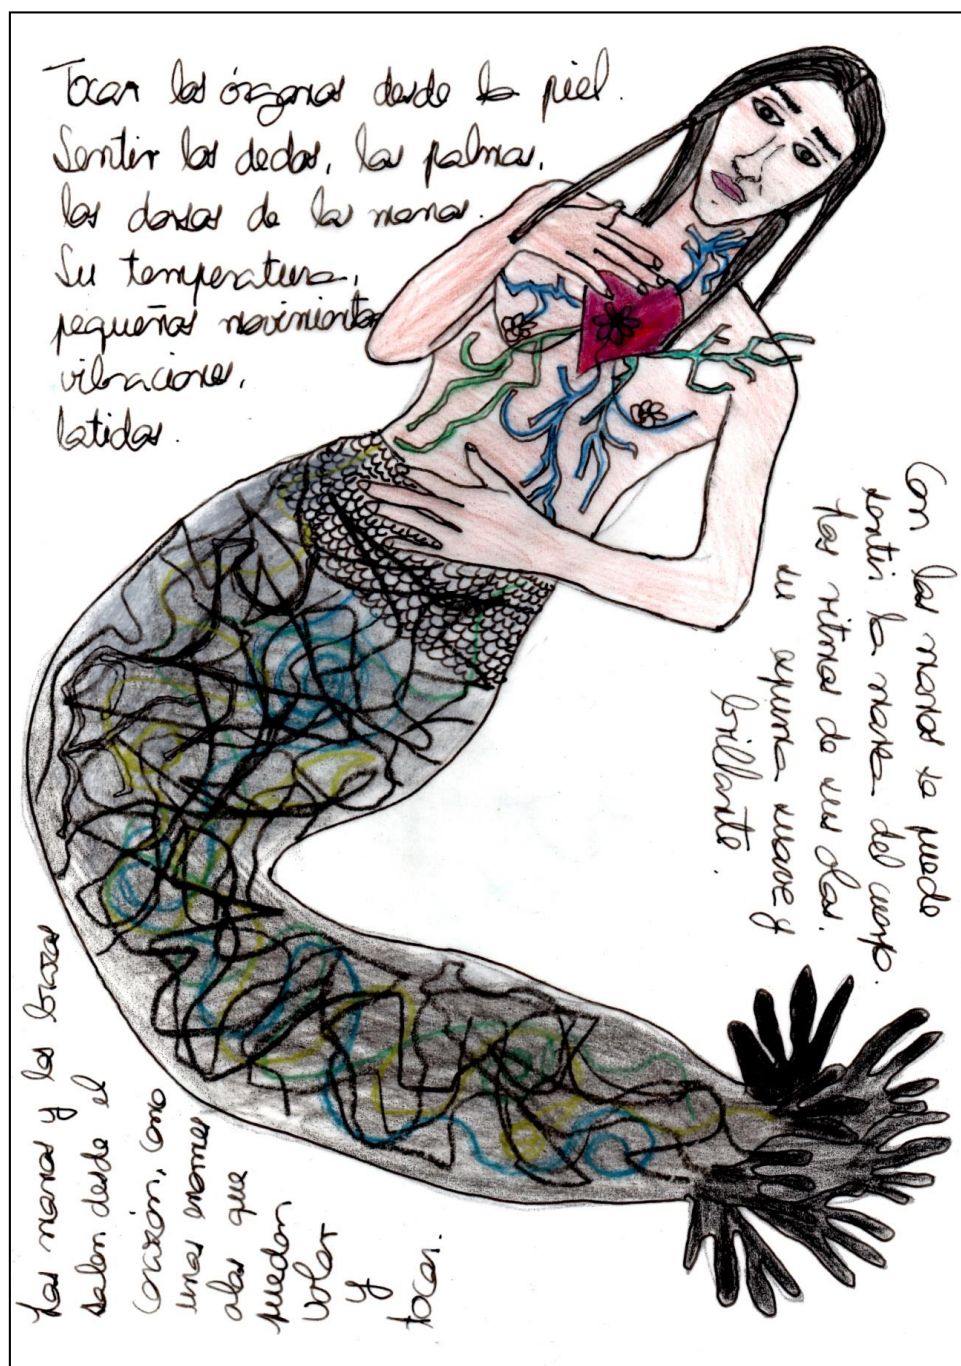 Tocar los órganos desde la piel.
Sentir los dedos, las palmas,
los dorsos de las manos.
Su temperatura,
pequeños movimientos
vibraciones,
latidos.
Con las manos se puede
sentir la marea del cuerpo.
Los ritmos de sus olas.
su espuma suave y
brillante.
Las manos y los brazos
salen desde el
corazón, como
unas enormes
alas que
puedan
volar
y
tocar.